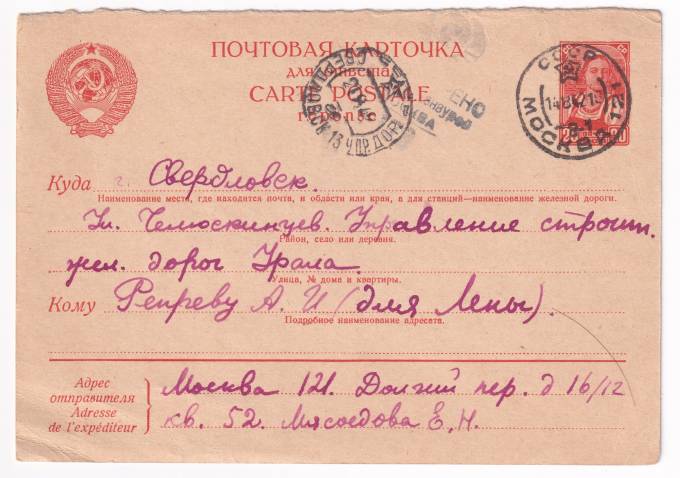 ПОЧТОВАЯ КАРТОЧКА
для ответа
CARTE POSTALE
réponse
СССР
МОСКВА 121
14.8.42
СВЕРДЛОВСК 13 УПР. ДОР.
МОСКВА
Куда г. Свердловск.
Наименование места, где находится почта, и области или края, а для станций—наименование железной дороги.
Ул. Челюскинцев. Управление строит.
Район, село или деревня.
жел. дорог Урала.
Улица, № дома и квартиры.
Кому Репреву А. И (для Лены).
Подробное наименование адресата.
Адрес
отправителя
Adresse
de l'expéditeur
Москва 121. Долгий пер. д 16/12
кв. 52. Мясоедова Е. Н.